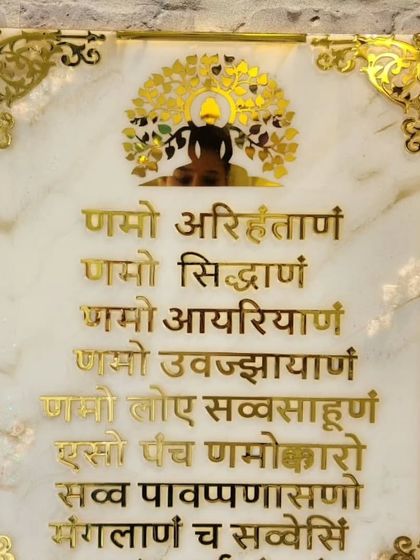 णमो अरिहंताणं
णमो सिद्धाणं
णमो आयरियाणं
णमो उवज्झायाणं
णमो लोए सव्वसाहूणं
एसो पंच णमोक्कारो
सव्व पावप्पणासणो
मंगलाणं च सव्वेसिं